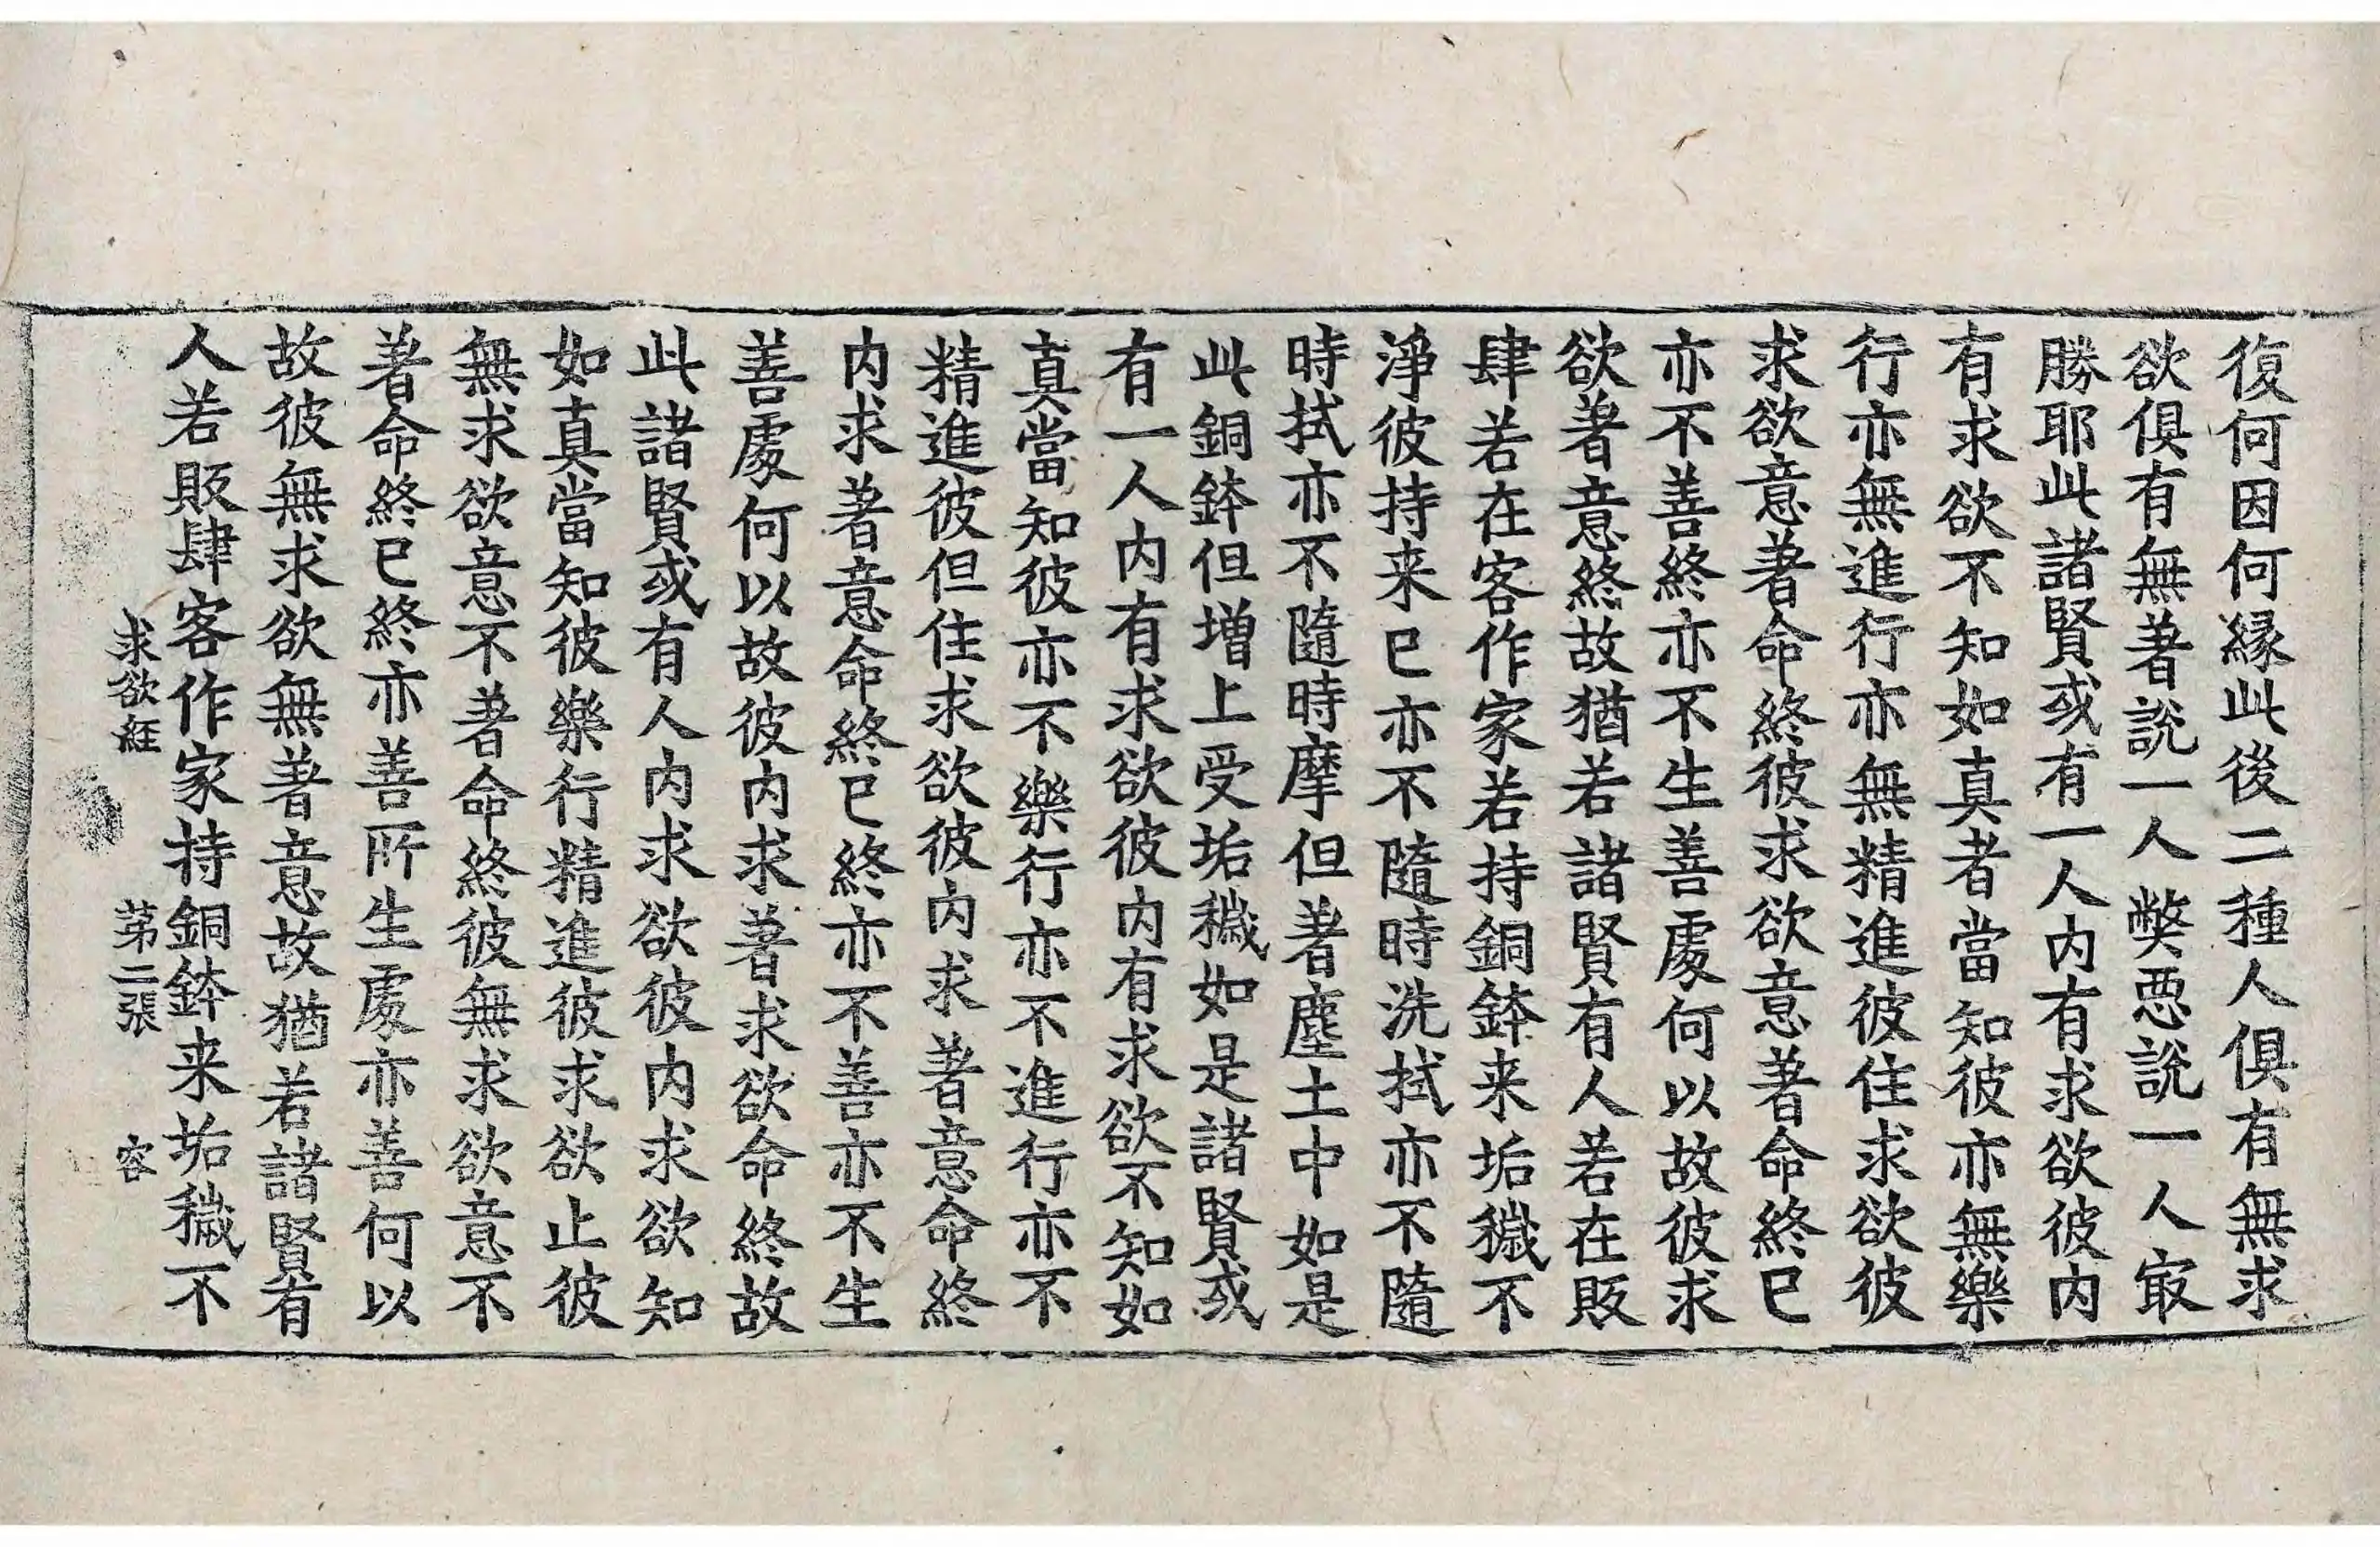 復何因何縁此後二種人俱有無求
欲俱有無著說一人弊惡說一人㝡
勝耶此諸賢或有一人内有求欲彼内
有求欲不知如真者當知彼亦無樂
行亦無進行亦無精進彼住求欲彼
求欲意著命終彼求欲意著命終已
亦不善終亦不生善處何以故彼求
欲著意終故猶若諸賢有人若在販
肆若在客作家若持銅鉢来垢穢不
淨彼持来已亦不隨時洗拭亦不隨
時拭亦不隨時摩但著塵土中如是
此銅鉢但増上受垢穢如是諸賢或
有一人内有求欲彼内有求欲不知如
真當知彼亦不樂行亦不進行亦不
精進彼但住求欲彼内求著意命終
内求著意命終已終亦不善亦不生
善處何以故彼内求著求欲命終故
此諸賢或有人内求欲彼内求欲知
如真當知彼樂行精進彼求欲止彼
無求欲意不著命終彼無求欲意不
著命終已終亦善所生處亦善何以
故彼無求欲無著意故猶若諸賢有
人若販肆客作家持銅鉢来垢穢不
求欲経 第二張 容